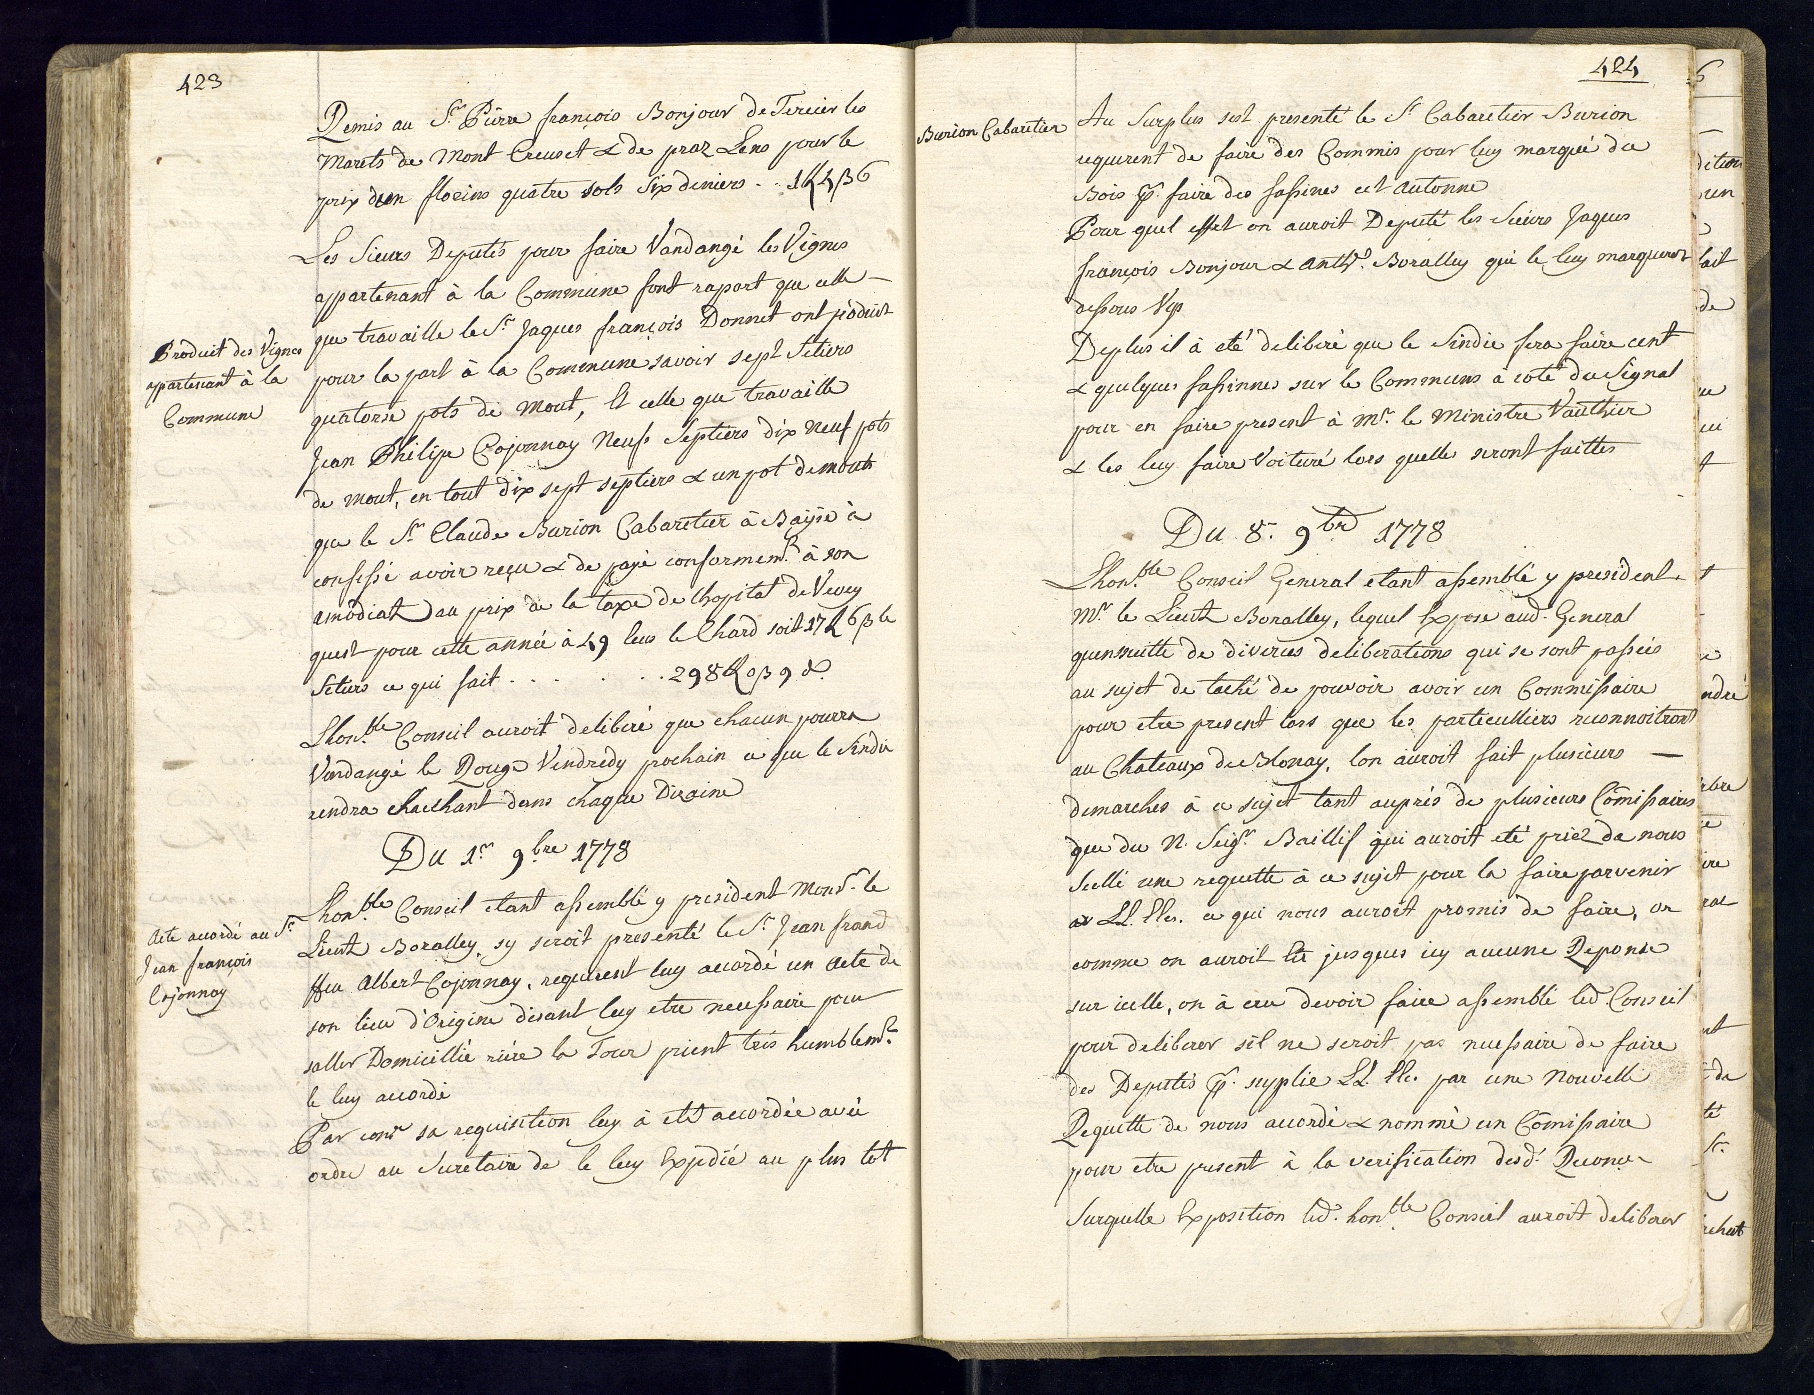 423
Remis au Sr. Pierre françois Bonjour de Tercier les
Marets de Mont Creuset & de praz Lens pour le
prix d'un florins quatre sols six deniers
Les Sieurs Deputés pour faire Vandangé les Vignes
appartenant à la Commune font raport que celle
que travaille le Sr. Jaques françois Donnet ont produit
Produit des Vignes
appartenant à la
Commune
pour la part à la Commune savoir sept Setiers
quatorse pots de Mout, Et celle que travaille
Jean Philipe Cojonnay Neufs Septiers dix neuf pots
de Mout, en tout dix sept septiers & un pot de mout
que le Sr. Claude Burion Cabaretier à Bayse à
confessé avoir reçu & de payé conformemt. à son
amodiat au prix de la taxe de Lhopital de Vevey
quest pour cette année à 49 le Chard soit 17 6 le
Setiers ce qui fait . . . . . . . 298 0 9
Lhonble. Conseil auroit deliberé que chacun pourra
Vandangé le Rouge Vendredy prochain ce que le Sindic
rendra chachant dans chaque Dizaine
Du 1r. 9bre 1778
Lhonble. Conseil etant assemblé y president Monsr. le
Lieut Boralley, sy seroit presenté le Sr. Jean frand
Acte accordé au Sr.
Jean françois
Cojonnay
ffeu Albert Cojonnay, requerent luy accordé un Acte de
son lieu d'Origine disant luy etre necessaire pour
saller Domicillié riére la Tour prient trés humblemt.
le luy accordé
Par contr sa requisition luy à eté accordée avec
ordre au Secretaire de le luy Expedié au plus tot
424
Burion Cabaretier
Au Surplus sest presenté le Sr. Cabaretier Burion
requerent de faire des Commis pour luy marqué du
Bois pr. faire des fassines cet Automne
Pour quel effet on auroit Deputé les Sieurs Jaques
françois Bonjour & Anthe. Boralley qui le luy marqueront
dessous
Deplus il à eté deliberé que le Sindic fera faire cent
& quelques fassinnes sur le Communs à coté du Signal
pour en faire present à Mr. le Ministre Vauthier
& les luy faire Voituré lors quelle seront faittes
Du 8r. 9bre 1778
Lhonble. Conseil General etant assemblé y president
Mr. le Lieut Boralley, lequel Expose aud. General
quensuitte de diverses deliberations qui se sont passées
au sujet de taché de pouvoir avoir un Commissaire
pour etre present lors que les particulliers reconnoitront
au Chateaux de Blonay, lon auroit fait plusieurs
demarches à ce sujet tant auprés de plusieurs Cōmissaires
que du N. Seigr. Baillif qui auroit eté priez de nous
Scellé une requette à ce sujet pour la faire parvenir
à LL. EEs. ce qui nous auroit promis de faire, or
comme on auroit Eté jusques icy aucune Reponse
sur icelle, on à cru devoir faire assemblé led. Conseil
pour deliberer sil ne seroit pas necessaire de faire
des Deputés pr. supplie LL. EEs. par une Nouvelle
Requette de nous accordé & nommé un Cōmissaire
pour etre present à la verification desd. Reconcs
Surquelle Exposition led. honble. Conseil auroit deliberer